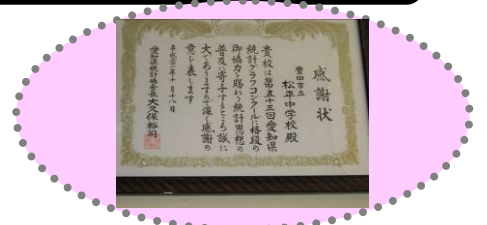 感謝状
豊田市立
松平中学校殿
貴校は第五十三回愛知県
統計グラフコンクールに格段の
御協力を賜わり統計思想の
普及に寄与するところ誠に
大でありますので深く感謝の
意を表します
平成二十年十月十八日
愛知県統計協会長大久保裕司